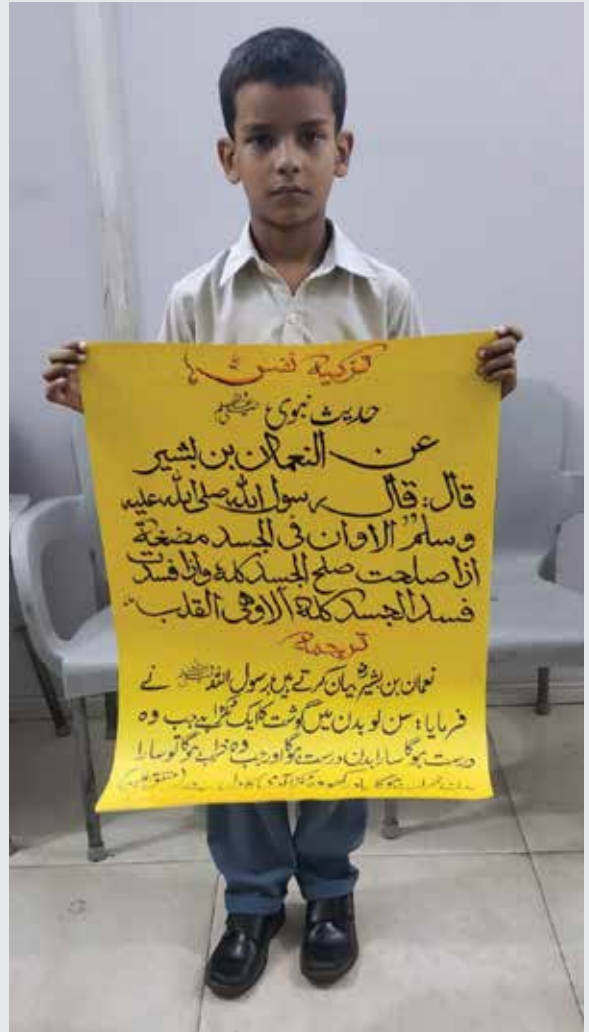 تزکیہ نفس
حدیث نبوی ﷺ
عن النعمان بن بشیر
قال: قال رسول اللہ صلی اللہ علیہ
وسلم" الاوان فی الجسد مضغة
اذا صلحت صلح الجسد کلہ واذا فسدت
فسد الجسد کلہ الاوھی القلب
ترجمہ
نعمان بن بشیرؓ بیان کرتے ہیں رسول اللہ ﷺ نے
فرمایا: سن لو بدن میں گوشت کا ایک ٹکڑا ہے جب وہ
درست ہوگا سارا بدن درست ہوگا اور جب وہ خراب ہوگا تو سارا